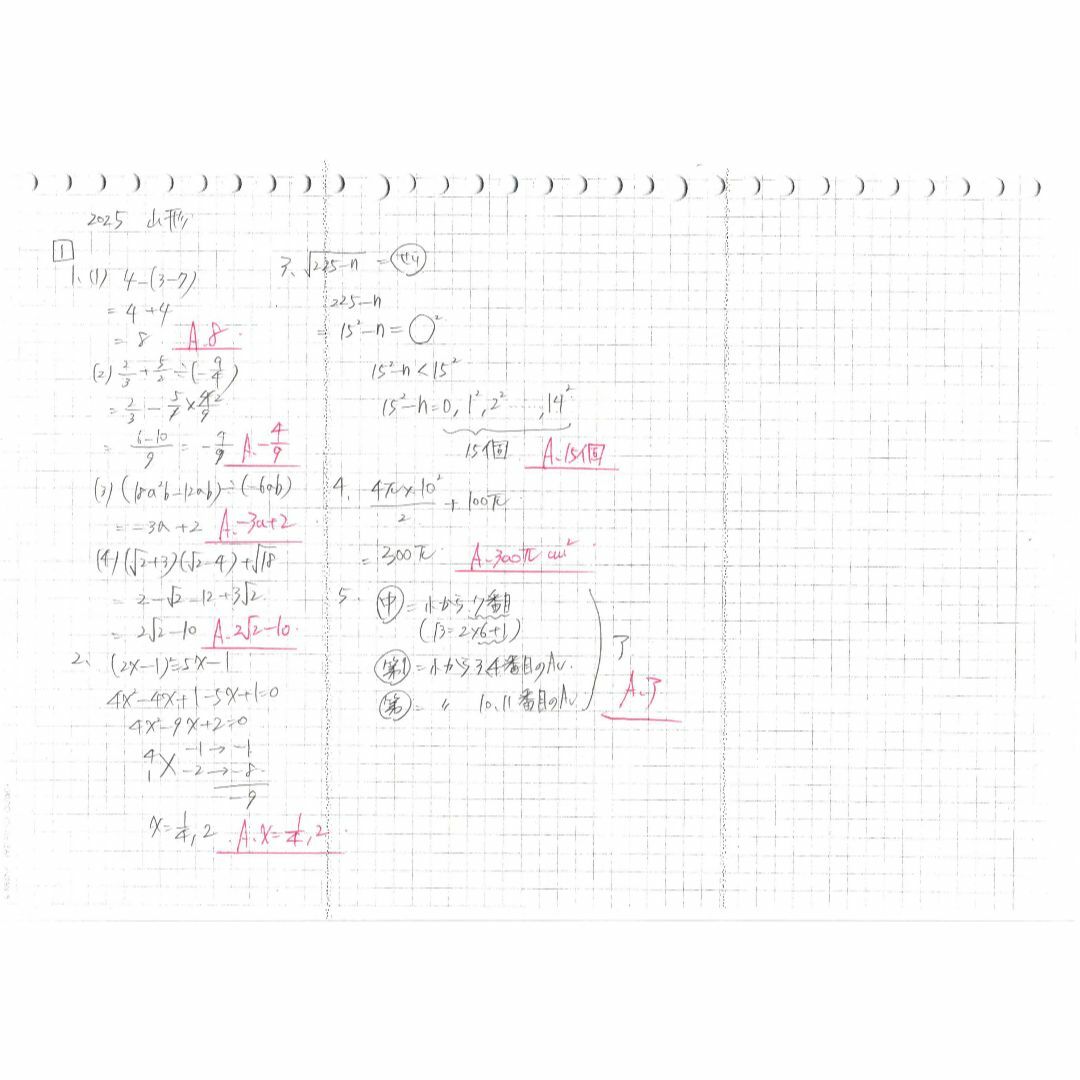 2025 山形
1
1、(1) 4-(3-7)
= 4+4
= 8 A.8
(2) 2/3 + 5/2 ÷ (-9/4)
= 2/3 - 5/2 × 4/9 2
= 6-10/9 = -4/9 A.-4/9
(3) (18a²b-12ab)÷(-6ab)
= -3a+2 A.-3a+2
(4) (√2+3)(√2-4)+√18
= 2-√2-12+3√2
= 2√2-10 A.2√2-10
2、 (2x-1)²=5x-1
4x²-4x+1-5x+1=0
4x²-9x+2=0
4 -1→-1
1 -2→-8
-9
x=1/4, 2 A.x=1/4, 2
3、√225-n =
225-n
= 15²-n=○²
15²-n<15²
15²-n=0, 1², 2² …, 14²
15個 A.15個
4. 4π×10²/2 + 100π
= 300π A.300π cm²
5. 中=小から7番目
(13=2×6+1)
第1=小から3,4番目のAv.
第 = 〃 10,11番目のAv.
ア
A.ア